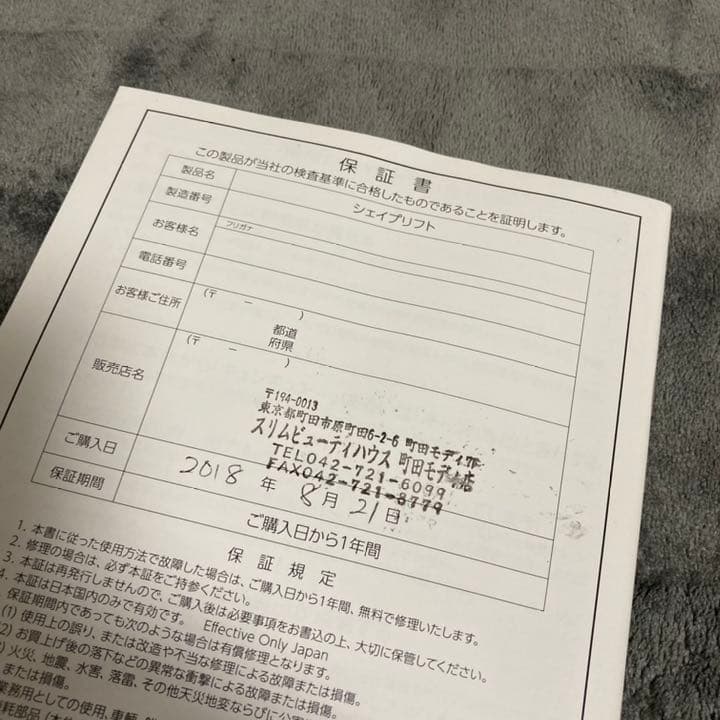 保証書
この製品が当社の検査基準に合格したものであることを証明します。
製品名 シェイプリフト
製造番号
お客様名 フリガナ
電話番号
お客様ご住所 (〒 ー )
都道
府県
販売店名 (〒 ー )
〒194-0013
東京都町田市原町田6-2-6 町田モディ
スリムビューティハウス 町田モディ店
TEL042-721-6099
FAX042-721-8779
ご購入日 2018 年 8 月 21 日
保証期間 ご購入日から1年間
保証規定
1. 本書に従った使用方法で故障した場合は、ご購入日から1年間、無料で修理いたします。
2. 修理の場合は、必ず本証をご持参ください。
3. 本証は再発行しませんので、ご購入後は必要事項をお書込の上、大切に保管してください。
4. 本証は日本国内のみで有効です。 Effective Only Japan
保証期間内であっても次のような場合は有償修理となります。
(1) 使用上の誤り、または改造や不当な修理による故障または損傷。
(2) お買上げ後の落下などの異常な衝撃による故障または損傷。
) 火災、地震、水害、落雷、その他天災地変ならびに公害
または損傷。
業務用としての使用、車輌、
耗部品(本体